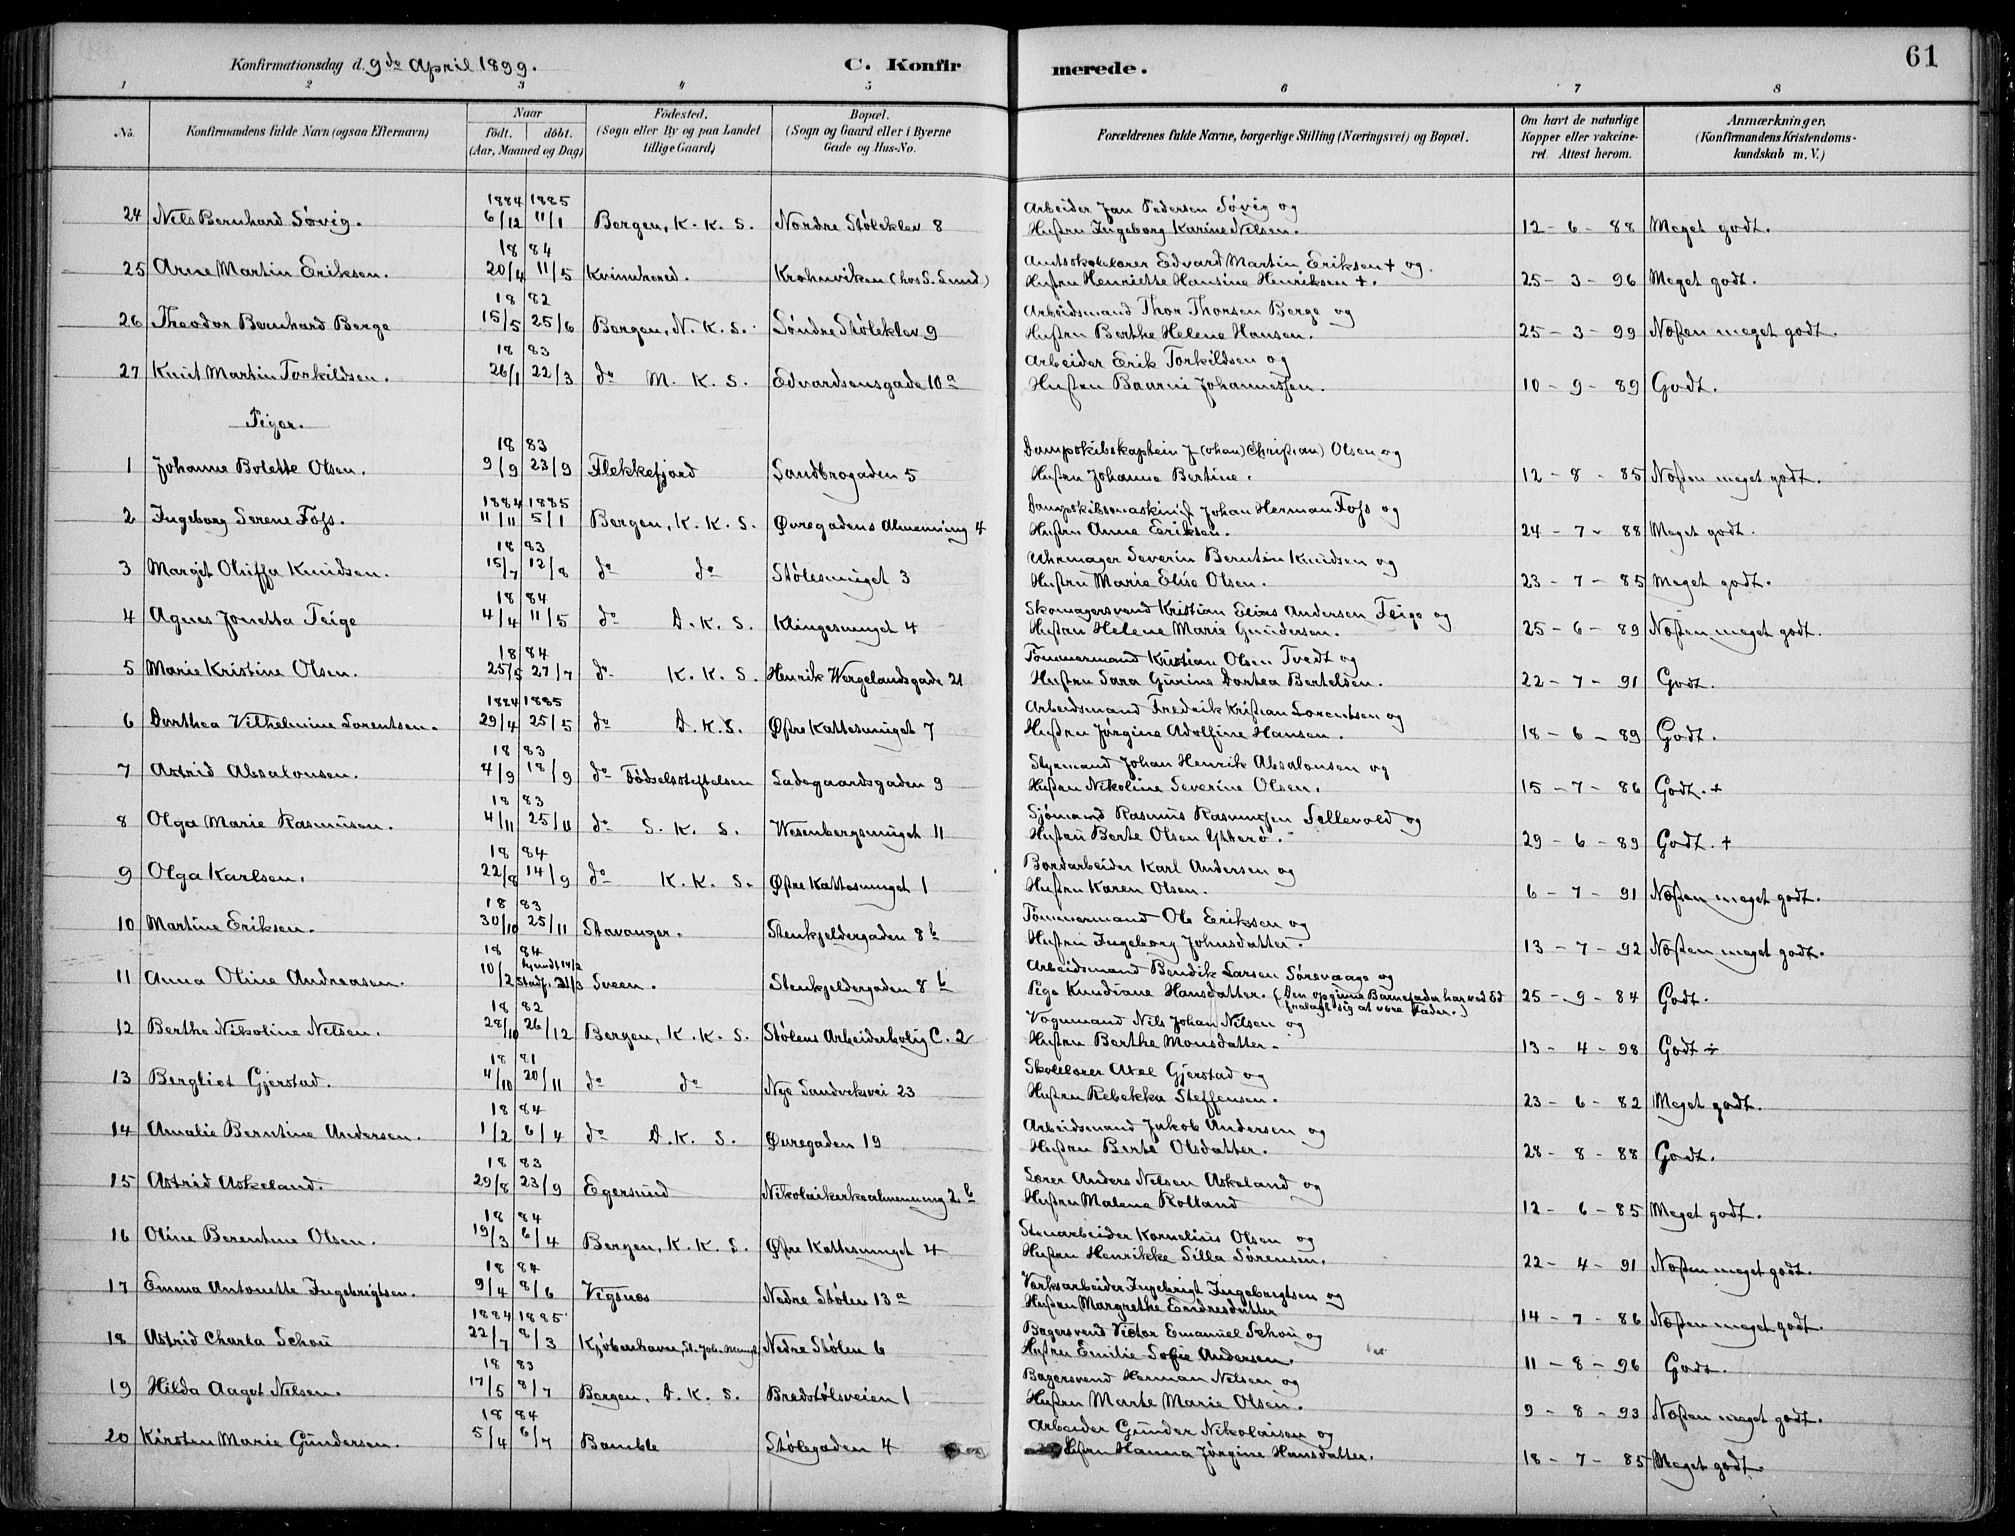 61
Konfirmationsdag d. 9de April 1899. C. Konfirmerede.
1 2 3 4 5 6 7 8
No. Konfirmandens fulde Navn (ogsaa Efternavn) Naar født. døbt. (Aar, Maaned og Dag) Fødested. (Sogn eller By og paa Landet tillige Gaard) Bopæl. (Sogn og Gaard eller i Byerne Gade og Hus-No. Forældrenes fulde Navne, borgerlige Stilling (Næringsvei) og Bopæl. Om havt de naturlige Kopper eller vakcineret. Attest herom. Anmærkninger, (Konfirmandens Kristendomskundskab m. V.)
24 Nils Bernhard Søvig. 1884 6/12 1885 11/1 Bergen, K. K. S. Nordre Støleklev 8 Arbeider Jan Pedersen Søvig og Hustru Ingeborg Karine Nilsen. 12 - 6 - 88 Meget godt.
25 Arne Martin Eriksen. 1884 20/4 11/5 Kvinnhered. Krohnviken (hos S. Lund) Amtsskolelærer Edvard Martin Eriksen + og Hustru Henriette Hansine Henriksen +. 25 - 3 - 96 Meget godt.
26 Theodor Bernhard Berge 1882 15/5 25/6 Bergen, N. K. S. Søndre Støleklev 9 Arbeidsmand Thor Thorsen Berge og Hustru Berthe Helene Hansen. 25 - 3 - 99 Næsten meget godt.
27 Knut Martin Torkildsen. 1883 26/1 22/3 do M. K. S. Edvardsensgade 10a Arbeider Erik Torkildsen og Hustru Baarni Johannessen. 10 - 9 - 89 Godt.
Piger.
1 Johanne Bolette Olsen. 1883 9/9 23/9 Flekkefjord Sandbrogaden 5 Dampskibskaptein J(ohan) Christian) Olsen og Hustru Johanne Bertine. 12 - 8 - 85 Næsten meget godt.
2 Ingeborg Serene Foss. 1884 11/11 1885 5/1 Bergen, K. K. S. Øvregadens Almenning 4 Dampskibsmaskinist Johan Herman Foss og Hustru Anne Eriksen. 24 - 7 - 88 Meget godt.
3 Margit Oluffa Knudsen. 1883 15/7 12/8 do do Stølesmuget 3 Uhrmager Severin Berntin Knudsen og Hustru Marie Elise Olsen. 23 - 7 - 85 Meget godt.
4 Agnes Jonetta Teige 1884 4/4 11/5 do D. K. S. Klingesmuget 4 Skomagersvend Kristian Elias Andersen Teige og Hustru Helene Marie Gundersen. 25 - 6 - 89 Næsten meget godt.
5 Marie Kristine Olsen. 1884 25/5 27/7 do K. K. S. Henrik Wergelandsgade 21 Tømmermand Kristian Olsen Tvedt og Hustru Sara Gurine Dortea Bertelsen. 22 - 7 - 91 Godt.
6 Dorthea Vilhelmine Lorentsen. 1884 29/4 1885 25/5 do D. K. S. Øvre Kattesmuget 7 Arbeidsmand Fredrik Kristian Lorentsen og Hustru Jørgine Adolfine Hansen. 18 - 6 - 89 Godt.
7 Astrid Absalonsen. 1883 4/9 18/9 do Fødselsstiftelsen Ladegaardsgaden 9 Styrmand Johan Henrik Absalonsen og Hustru Nikoline Severine Olsen. 15 - 7 - 86 Godt. +
8 Olga Marie Rasmusen. 1883 4/11 25/11 do S. K. S. Wesenbergsmuget 11 Sjømand Rasmus Rasmussen Sellevold og Hustru Berte Olsen Ytterø. 29 - 6 - 89 Godt. +
9 Olga Karlsen. 1884 22/8 14/9 do K. K. S. Øvre Kattesmuget 1 Bordarbeider Karl Andersen og Hustru Karen Olsen. 6 - 7 - 91 Næsten meget godt.
10 Martine Eriksen. 1883 30/10 25/11 Stavanger. Stenkjeldergaden 8b Tømmermand Ole Eriksen og Hustru Ingeborg Johnsdatter. 13 - 7 - 92 Næsten meget godt.
11 Anna Oline Andreasen. 1884 10/2 hjemdt. 14/2 Stadf. 21/3 Sveen. Stenkjeldergaden 8b Arbeidsmand Bendik Larsen Sørevaage og Pige Knudiane Hansdatter. (Den opgivne Barnefader har ved Ed fralagt sig at være Fader.) 25 - 9 - 84 Godt.
12 Berthe Nikoline Nilsen. 1882 28/10 26/12 Bergen, K. K. S. Stølens Arbeiderbolig C. 2 Vognmand Nils Johan Nilsen og Hustru Berthe Monsdatter. 13 - 4 - 98 Godt ÷
13 Bergliot Gjerstad. 1881 4/10 20/11 do do Nye Sandviksvei 23 Skolelærer Axel Gjerstad og Hustru Rebekka Steffensen. 23 - 6 - 82 Meget godt.
14 Amalie Berntine Andersen. 1884 1/2 6/4 do D. K. S. Øvregaden 19 Arbeidsmand Jakob Andersen og Hustru Berte Olsdatter. 28 - 8 - 88 Godt.
15 Astrid Askeland. 1883 29/8 23/9 Egersund Nikolaikirkealmenning 2b Lærer Anders Nilsen Askeland og Hustru Malene Rolland 12 - 6 - 85 Meget godt.
16 Oline Berentine Olsen. 1884 19/3 6/4 Bergen, K. K. S. Øvre Kattesmuget 4 Stuearbeider Kornelius Olsen og Hustru Henrikke Silla Sørensen. 22 - 4 - 91 Næsten meget godt.
17 Emma Antonette Ingebrigtsen. 1884 9/4 8/6 Vigsnes Nedre Stølen 13a Verksarbeider Ingebrigt Ingebrigtsen og Hustru Margrethe Endresdatter 14 - 7 - 86 Næsten meget godt.
18 Astrid Charla Schou 1884 22/7 1885 8/3 Kjøbenhavn, St. Joh. Menigh. Nedre Stølen 6 Bagersvend Victor Emanuel Schou og Hustru Emilie Sofie Andersen. 11 - 8 - 96 Godt.
19 Hilda Aagot Nilsen. 1883 17/5 8/7 Bergen, D. K. S. Bredstølsveien 1 Bagersvend Herman Nilsen og Hustru Marte Marie Olsen. 9 - 8 - 93 Næsten meget godt.
20 Kirsten Marie Gundersen. 1884 5/4 6/7 Bamble Stølegaden 4 Arbeider Gunder Nikolaisen og Hustru Hanna Jørgine Hansdatter. 18 - 7 - 85 Meget godt.